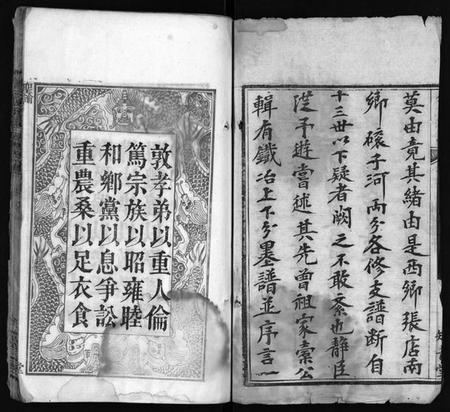 莫由竟其緒由是西鄉張店南
鄉磙子河兩分各修支譜斷自
十三世以下疑者闕之不敢紊也靜臣
從予遊嘗述其先曾祖家柰公
輯有鐵冶上下分墨譜並序言一
敦孝弟以重人倫
篤宗族以昭雍睦
和鄉黨以息爭訟
重農桑以足衣食